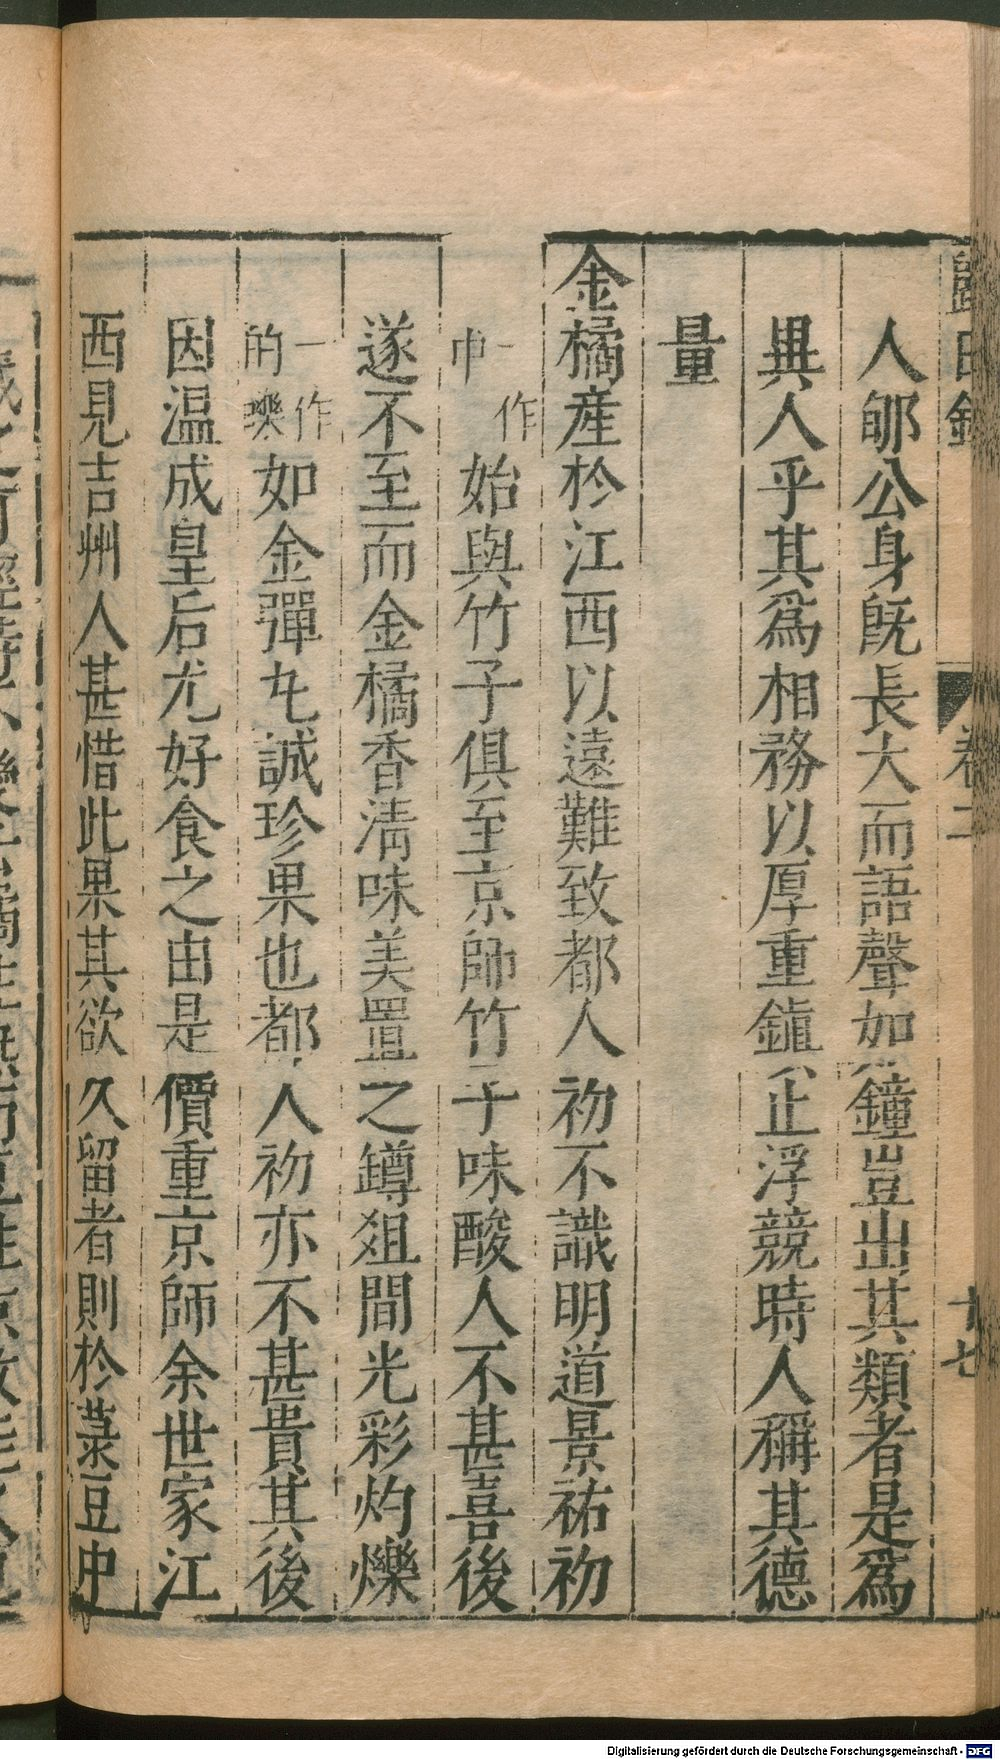 歸田錄 卷二 十七
人邪公身旣長大而語聲如鐘豈出其類者是爲
異人乎其爲相務以厚重鎭止浮競時人稱其德
量
金橘產於江西以遠難致都人初不識明道景祐初
一作中始與竹子俱至京師竹子味酸人不甚喜後
遂不至而金橘香淸味美置之罇爼間光彩灼爍
一作的皪如金彈丸誠珍果也都人初亦不甚貴其後
因温成皇后尤好食之由是價重京師余世家江
西見吉州人甚惜此果其欲久留者則於菉豆中
Digitalisierung gefördert durch die Deutsche Forschungsgemeinschaft - DFG